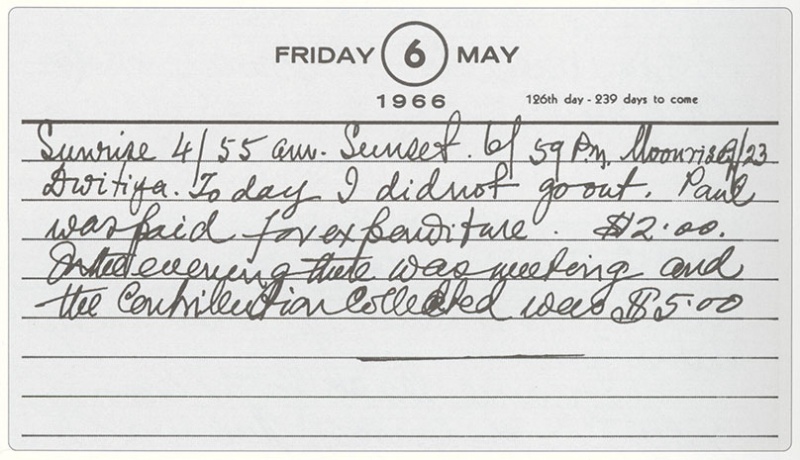 FRIDAY 6 MAY
1966 126th day - 239 days to come
Sunrise 4/55 am. Sunset. 6/59 P.M. Moonrise 9/23
Dwitiya. To day I did not go out. Paul
was paid for expenditure. $2.00.
In the evening there was meeting and
the contribution collected was $5.00